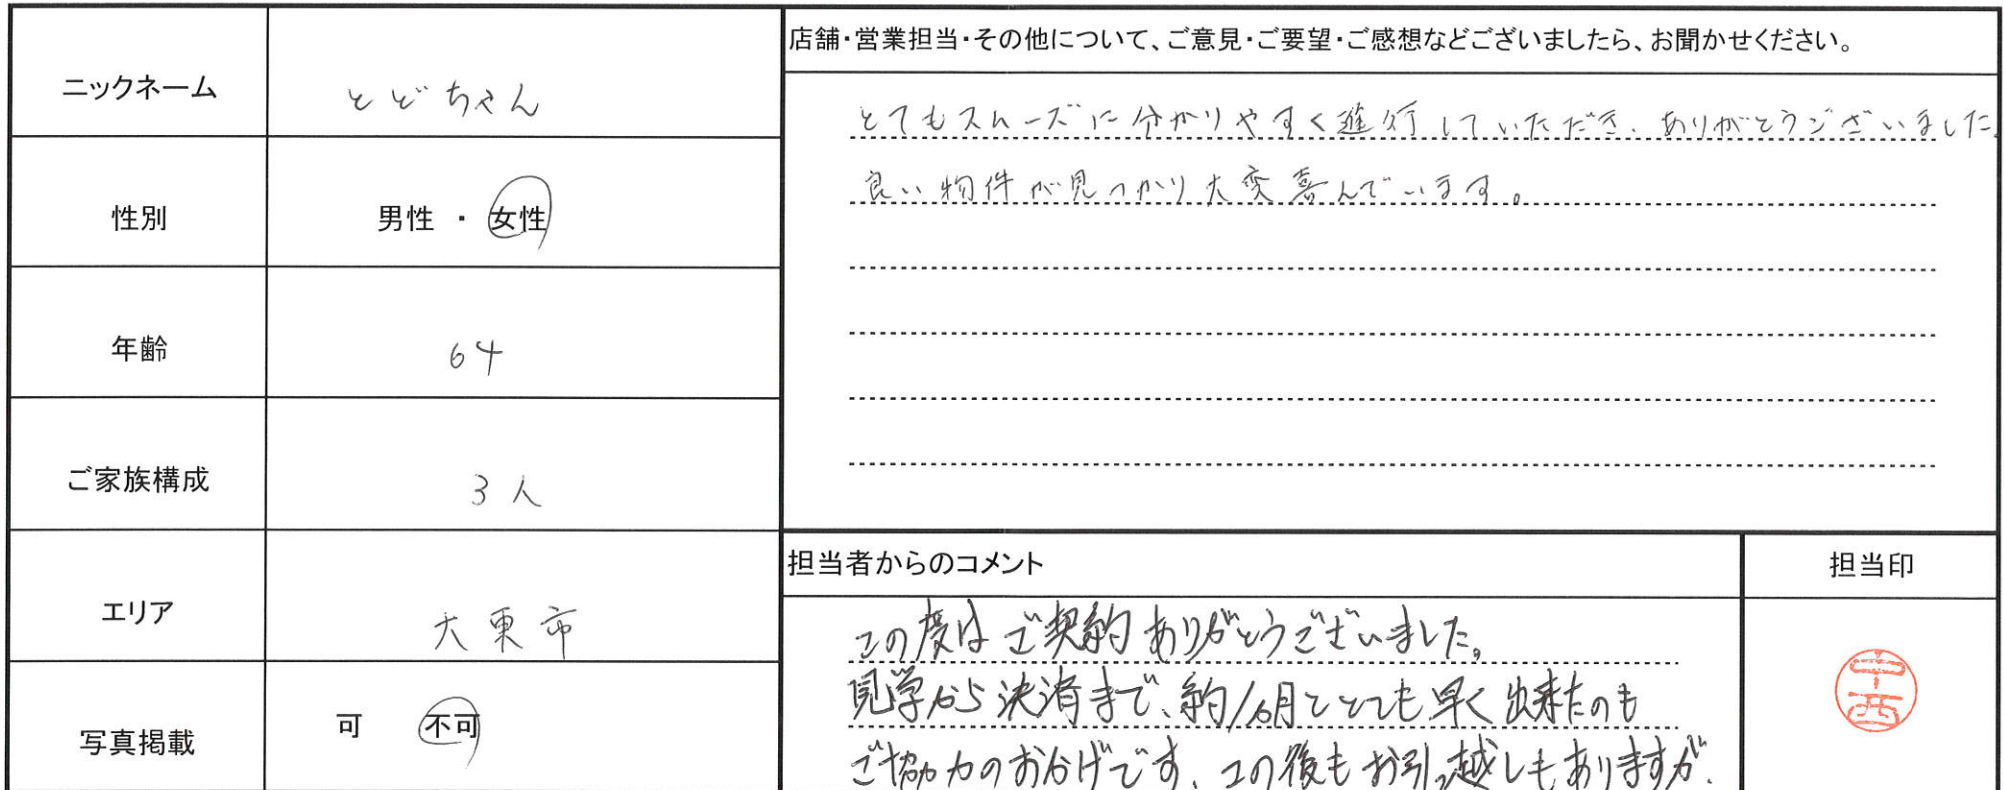 ニックネーム
とどちゃん
性別
男性 ・ 女性
年齢
64
ご家族構成
3人
エリア
大東市
写真掲載
可 不可
店舗・営業担当・その他について、ご意見・ご要望・ご感想などございましたら、お聞かせください。
とてもスムーズに分かりやすく進行していただき、ありがとうございました。
良い物件が見つかり大変喜んでいます。
担当者からのコメント
この度はご契約ありがとうございました。
見学から決済まで、約1ヶ月でとても早く出来たのも
ご協力のおかげです、この後もお引っ越しもありますが、
担当印
中西